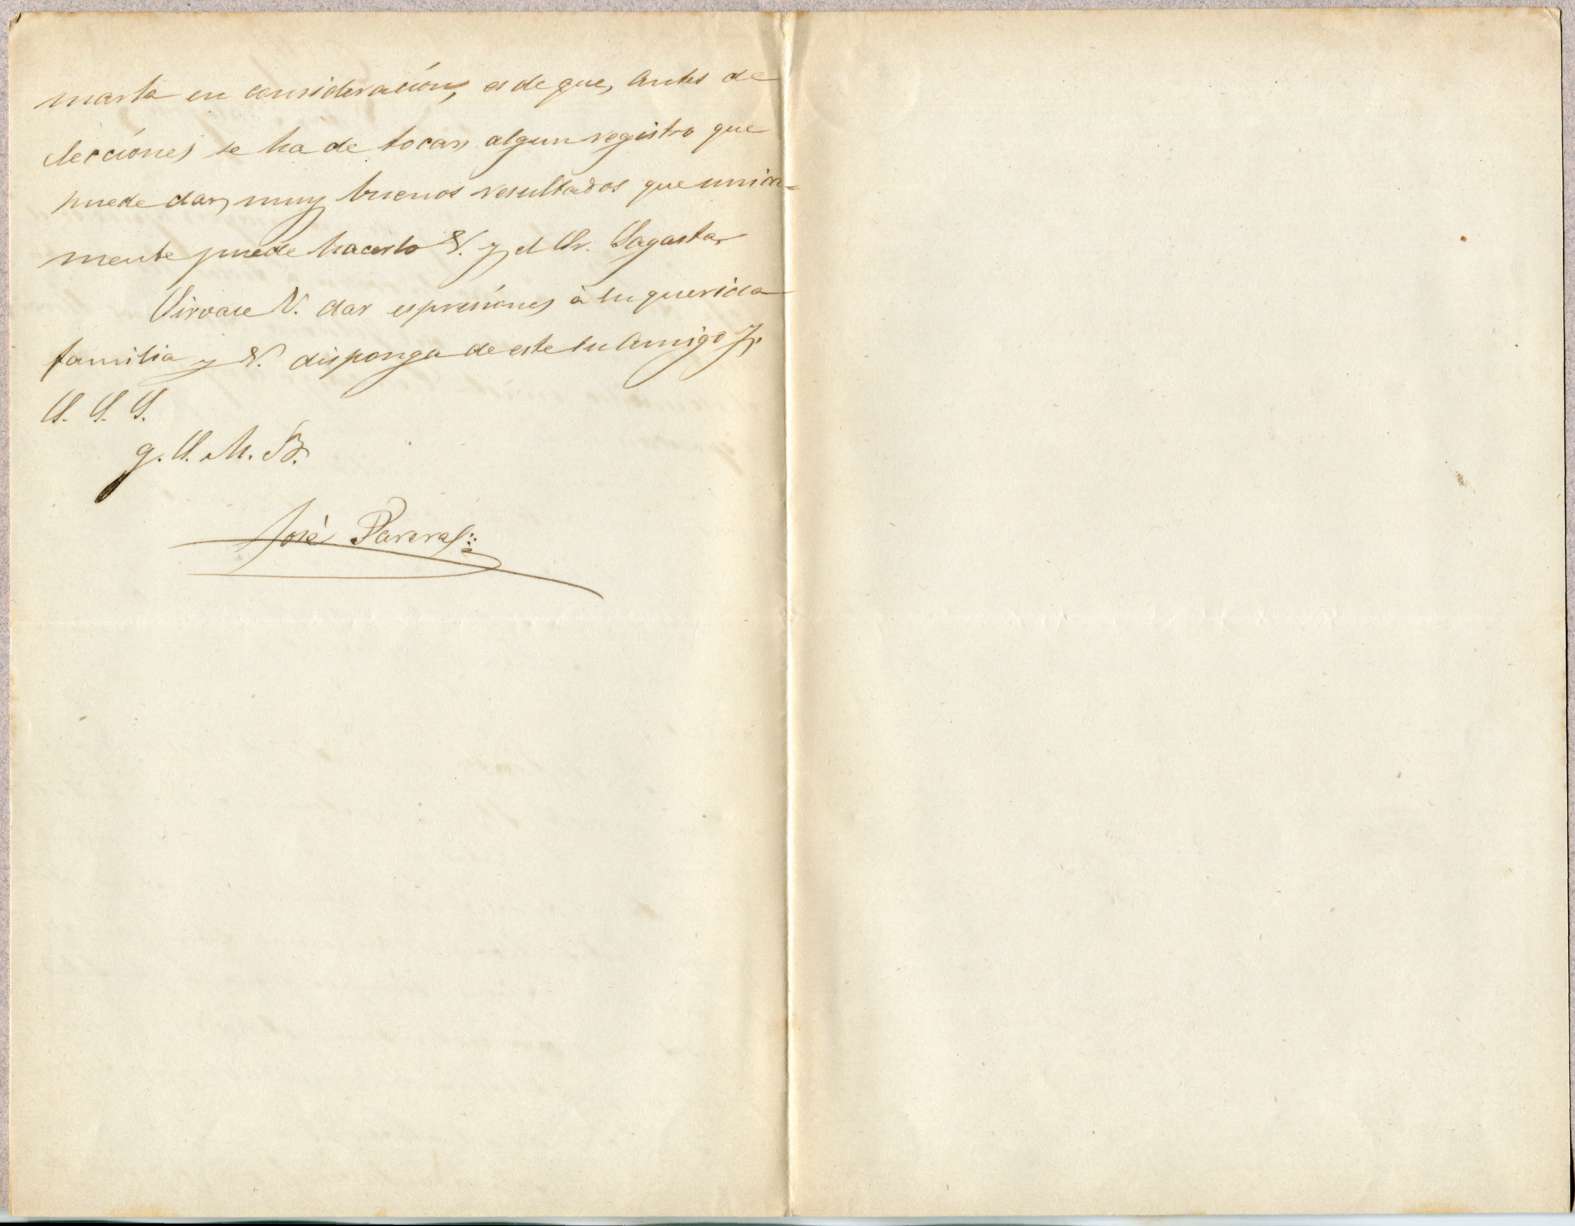 marla en consideración, es de que, antes de
elecciones se ha de tocar algun registro que
puede dar, muy buenos resultados que unica-
mente puede hacerlo V. y el Sr. Sagasta,
Sirvase V. dar espresiónes à su querida
familia y V. disponga de este su amigo y,
S. S. S.
q. S. M. B.
José Pareras